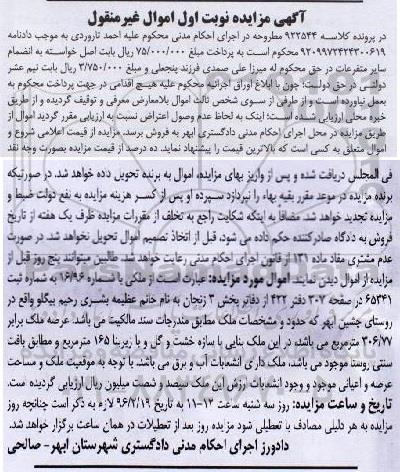 آگهی مزایده نوبت اول اموال غیرمنقول
در پرونده کلاسه ۹۲۲۵۴۴ مطروحه در اجرای احکام مدنی محکوم علیه احمد تاروردی به موجب دادنامه
۹۲۰۹۹۷۲۴۲۴۳۰۰۶۱۹ محکوم است به پرداخت مبلغ ۷۵/۰۰۰/۰۰۰ ریال بابت اصل خواسته به انضمام
سایر متفرعات در حق محکوم له میرزا علی صمدی فرزند پنجعلی و مبلغ ۳/۷۵۰/۰۰۰ ریال بابت نیم عشر
دولتی در حق دولت؛ چون با ابلاغ اوراق اجرائیه محکوم علیه هیچ اقدامی در جهت پرداخت محکوم به
بعمل نیاورده است و از طرفی از سوی شخص ثالث اموال بلامعارض معرفی و توقیف گردیده و از طریق
خبره محلی ارزیابی شده است؛ اینک به لحاظ عدم وصول اعتراض نسبت به ارزیابی مقرر گردید اموال از
طریق مزایده در محل اجرای احکام مدنی دادگستری ابهر به فروش برسد. مزایده از قیمت اعلامی شروع و
اموال متعلق به کسی است که بالاترین قیمت را پیشنهاد نماید. ده درصد از قیمت مزایده بصورت وجه نقد
فی المجلس دریافت شده و پس از واریز بهای مزایده، اموال به برنده تحویل داده خواهد شد. در صورتیکه
برنده مزایده در موعد مقرر بقیه بهاء را نپردازد سپرده او پس از کسر هزینه مزایده به نفع دولت ضبط و
مزایده تجدید خواهد شد. مضافا به اینکه شکایت راجع به تخلف از مقررات مزایده ظرف یک هفته از تاریخ
فروش به دادگاه صادرکننده حکم داده می شود، قبل از اتخاذ تصمیم اموال تحویل نخواهد شد. در صورت
عدم مشتری مفاد ماده ۱۳۱ از قانون اجرای احکام مدنی رعایت خواهد شد. طالبین میتوانند پنج روز قبل از
مزایده از اموال دیدن نمایند. اموال مورد مزایده: عبارت است از ملکی با شماره ۱۶/۹۶ به شماره ثبت
۶۵۳۴۱ در صفحه ۳۰۷ دفتر ۴۲۲ از دفاتر بخش ۳ زنجان به نام خانم عظیمه بشری رحیم بیگلو واقع در
روستای چشین ابهر که حدود و مشخصات ملک مطابق مندرجات سند مالکیت می باشد. عرصه ملک برابر
۳۰۶/۷۷ مترمربع می باشد، در این ملک بنایی با سازه خشت و گل و با زیربنا ۱۶۵ مترمربع و مطابق بافت
سنتی روستا موجود می باشد، ملک دارای انشعابات آب و برق می باشد. با توجه به موقعیت ملک و مساحت
عرصه و اعیانی موجود و وجود انشعابات ارزش این ملک سیصد و شصت میلیون ریال ارزیابی گردیده است.
تاریخ و ساعت مزایده: روز سه شنبه ساعت ۱۳-۱۱ به تاریخ ۹۶/۲/۱۹ لازم به ذکر است چنانچه روز
مزایده به هر دلیلی مصادف با تعطیلی شود مزایده روز بعد از تعطیلات در همان ساعت برگزار خواهد شد.
دادورز اجرای احکام مدنی دادگستری شهرستان ابهر- صالحی